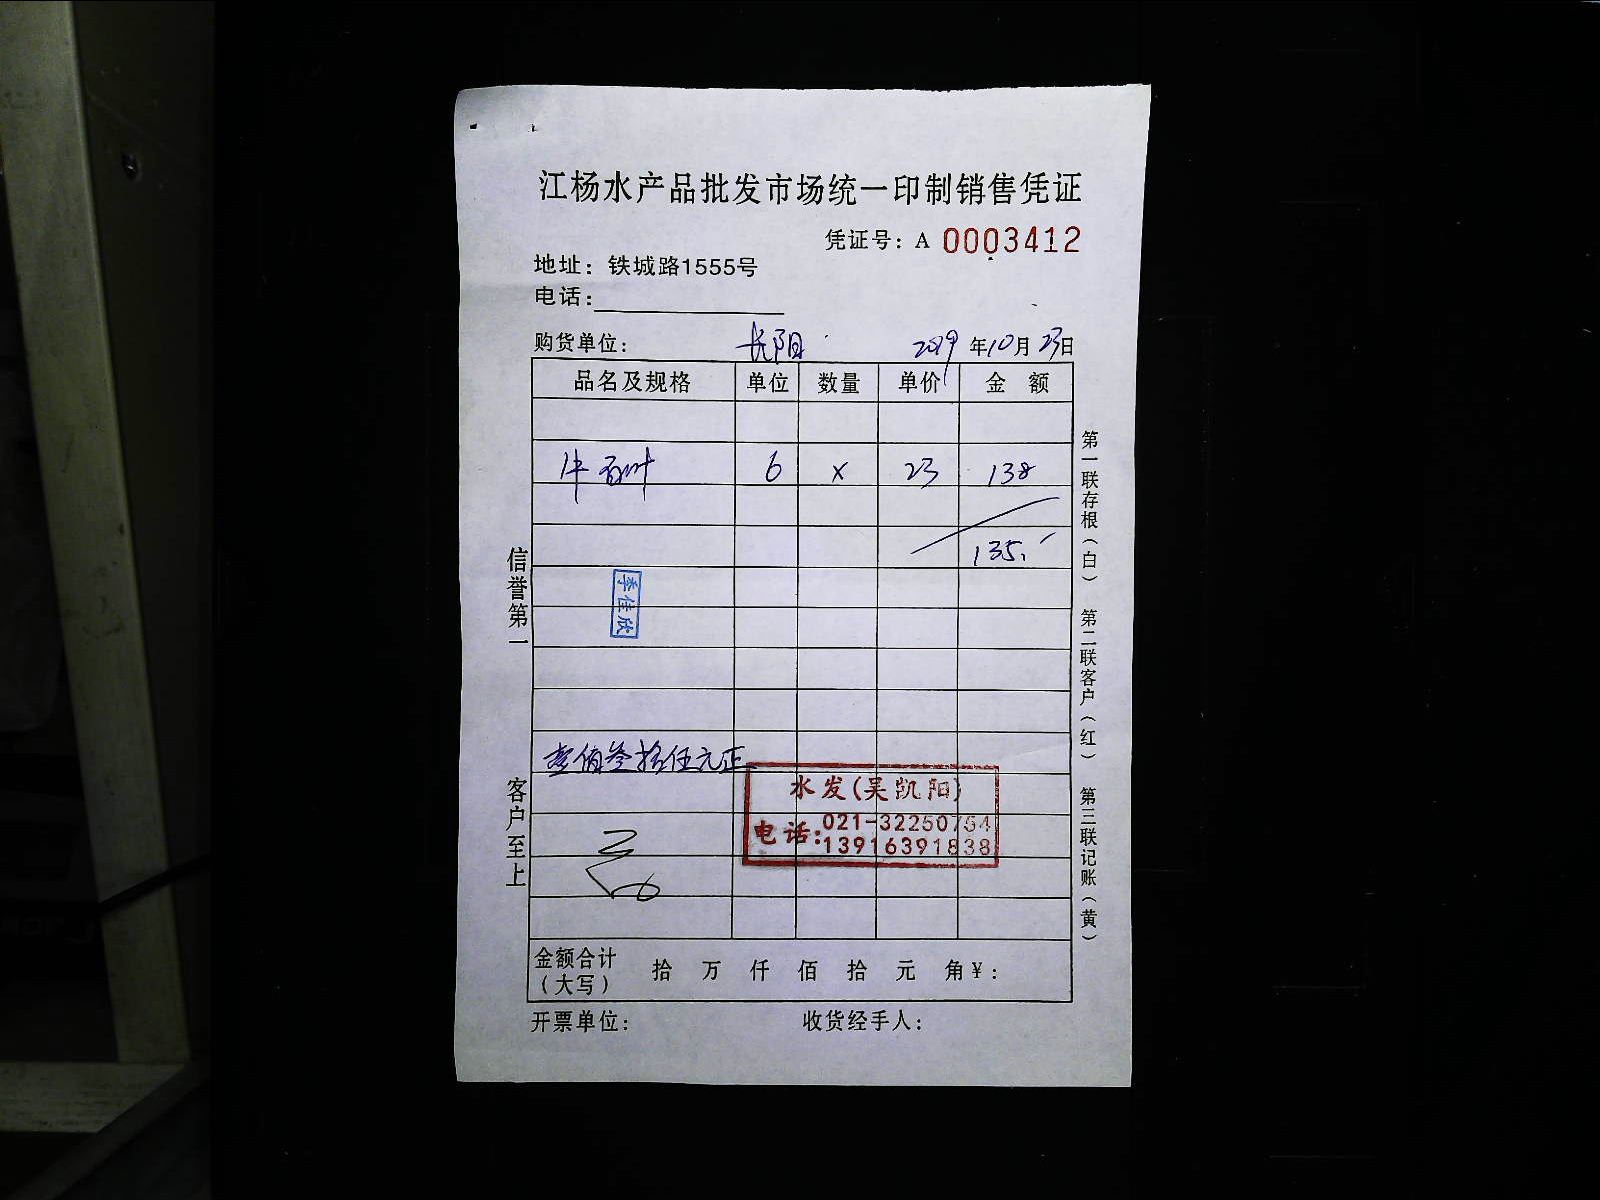 江杨水产品批发市场统一印制销售凭证
凭证号：A 0003412
地址：铁城路1555号
电话：
购货单位： 长阳 2019年10月23日
品名及规格 单位 数量 单价 金 额
牛百叶 6 x 23 138
135.
季佳欣
壹佰叁拾伍元正
水发(吴凯阳)
电话:021-32250754
13916391838
金额合计（大写） 拾 万 仟 佰 拾 元 角¥：
开票单位： 收货经手人：
信誉第一 客户至上
第一联存根（白） 第二联客户（红） 第三联记账（黄）